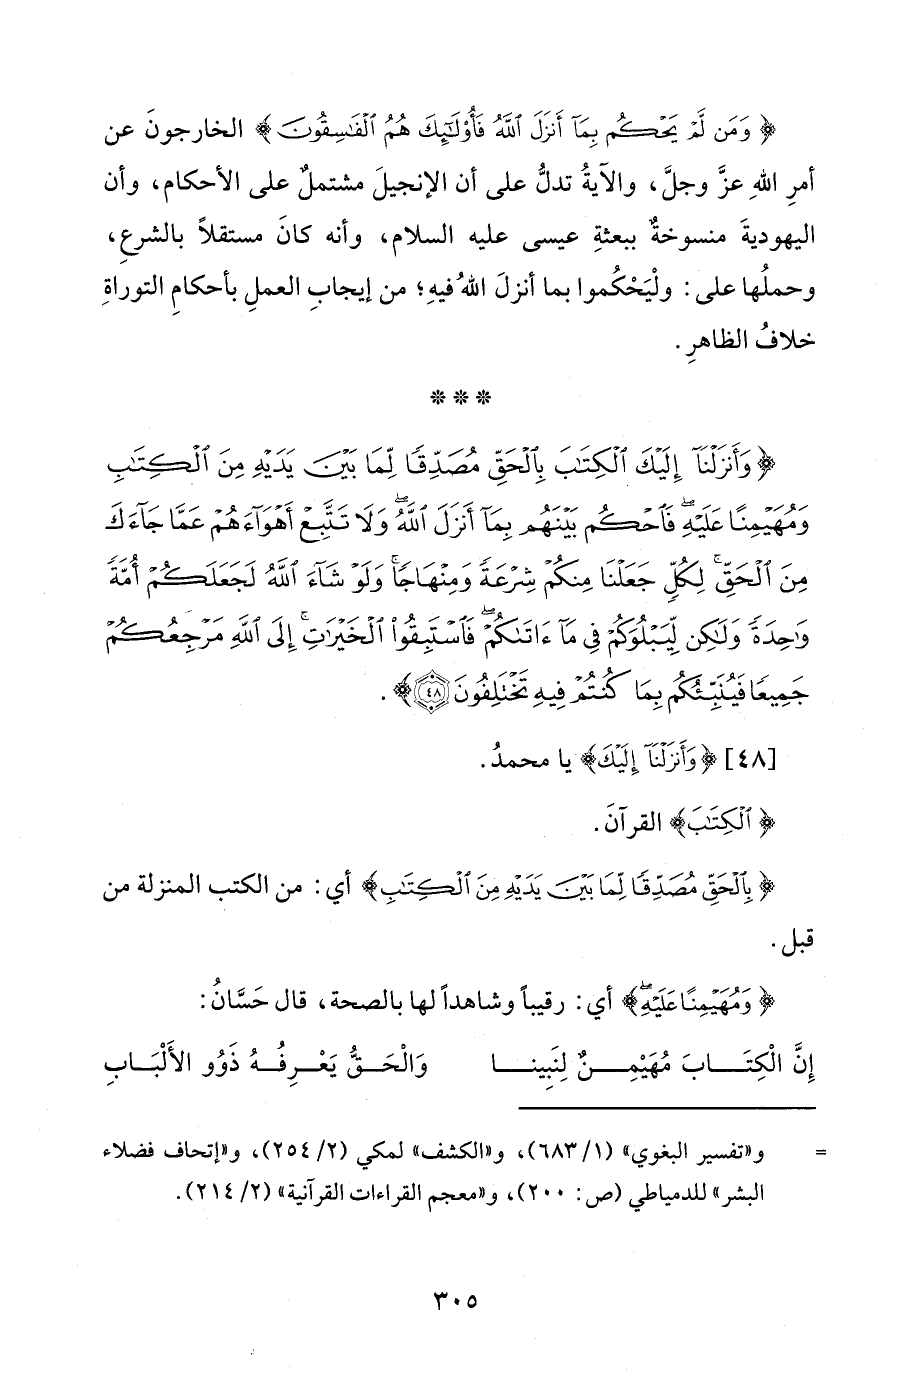 ﴿ وَمَن لَّمْ يَحْكُم بِمَآ أَنزَلَ ٱللَّهُ فَأُوْلَٰٓئِكَ هُمُ ٱلْفَٰسِقُونَ ﴾ الخارجونَ عن
أمرِ اللهِ عزَّ وجلَّ، والآيةُ تدلُّ على أن الإنجيلَ مشتملٌ على الأحكامِ، وأن
اليهوديةَ منسوخةٌ ببعثةِ عيسى عليه السلام، وأنه كانَ مستقلاً بالشرعِ،
وحملُها على: ولْيَحْكُموا بما أنزلَ اللهُ فيهِ؛ من إيجابِ العملِ بأحكامِ التوراةِ
خلافُ الظاهرِ.
***
﴿ وَأَنزَلْنَآ إِلَيْكَ ٱلْكِتَٰبَ بِٱلْحَقِّ مُصَدِّقًا لِّمَا بَيْنَ يَدَيْهِ مِنَ ٱلْكِتَٰبِ
وَمُهَيْمِنًا عَلَيْهِۖ فَٱحْكُم بَيْنَهُم بِمَآ أَنزَلَ ٱللَّهُۖ وَلَا تَتَّبِعْ أَهْوَآءَهُمْ عَمَّا جَآءَكَ
مِنَ ٱلْحَقِّۚ لِكُلٍّ جَعَلْنَا مِنكُمْ شِرْعَةً وَمِنْهَاجًاۚ وَلَوْ شَآءَ ٱللَّهُ لَجَعَلَكُمْ أُمَّةً
وَٰحِدَةً وَلَٰكِن لِّيَبْلُوَكُمْ فِى مَآ ءَاتَىٰكُمْۖ فَٱسْتَبِقُواْ ٱلْخَيْرَٰتِۚ إِلَى ٱللَّهِ مَرْجِعُكُمْ
جَمِيعًا فَيُنَبِّئُكُم بِمَا كُنتُمْ فِيهِ تَخْتَلِفُونَ ٤٨﴾.
[٤٨] ﴿ وَأَنزَلْنَآ إِلَيْكَ﴾ يا محمدُ.
﴿ ٱلْكِتَٰبَ﴾ القرآنَ.
﴿ بِٱلْحَقِّ مُصَدِّقًا لِّمَا بَيْنَ يَدَيْهِ مِنَ ٱلْكِتَٰبِ﴾ أي: من الكتب المنزلة من
قبل.
﴿ وَمُهَيْمِنًا عَلَيْهِۖ﴾ أي: رقيباً وشاهداً لها بالصحة، قال حَسَّانُ:
إِنَّ الْكِتَـابَ مُهَيْمِـنٌ لِنَبِينـا وَالْحَـقُّ يَعْـرِفُـهُ ذَوُو الأَلْبَـابِ
= و«تفسير البغوي» (١/ ٦٨٣)، و«الكشف» لمكي (٢/ ٢٥٤)، و«إتحاف فضلاء
البشر» للدمياطي (ص: ٢٠٠)، و«معجم القراءات القرآنية» (٢/ ٢١٤).
٣٠٥